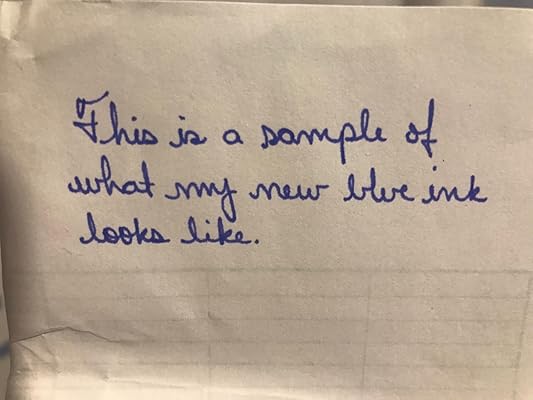 This is a sample of
what my new blue ink
looks like.